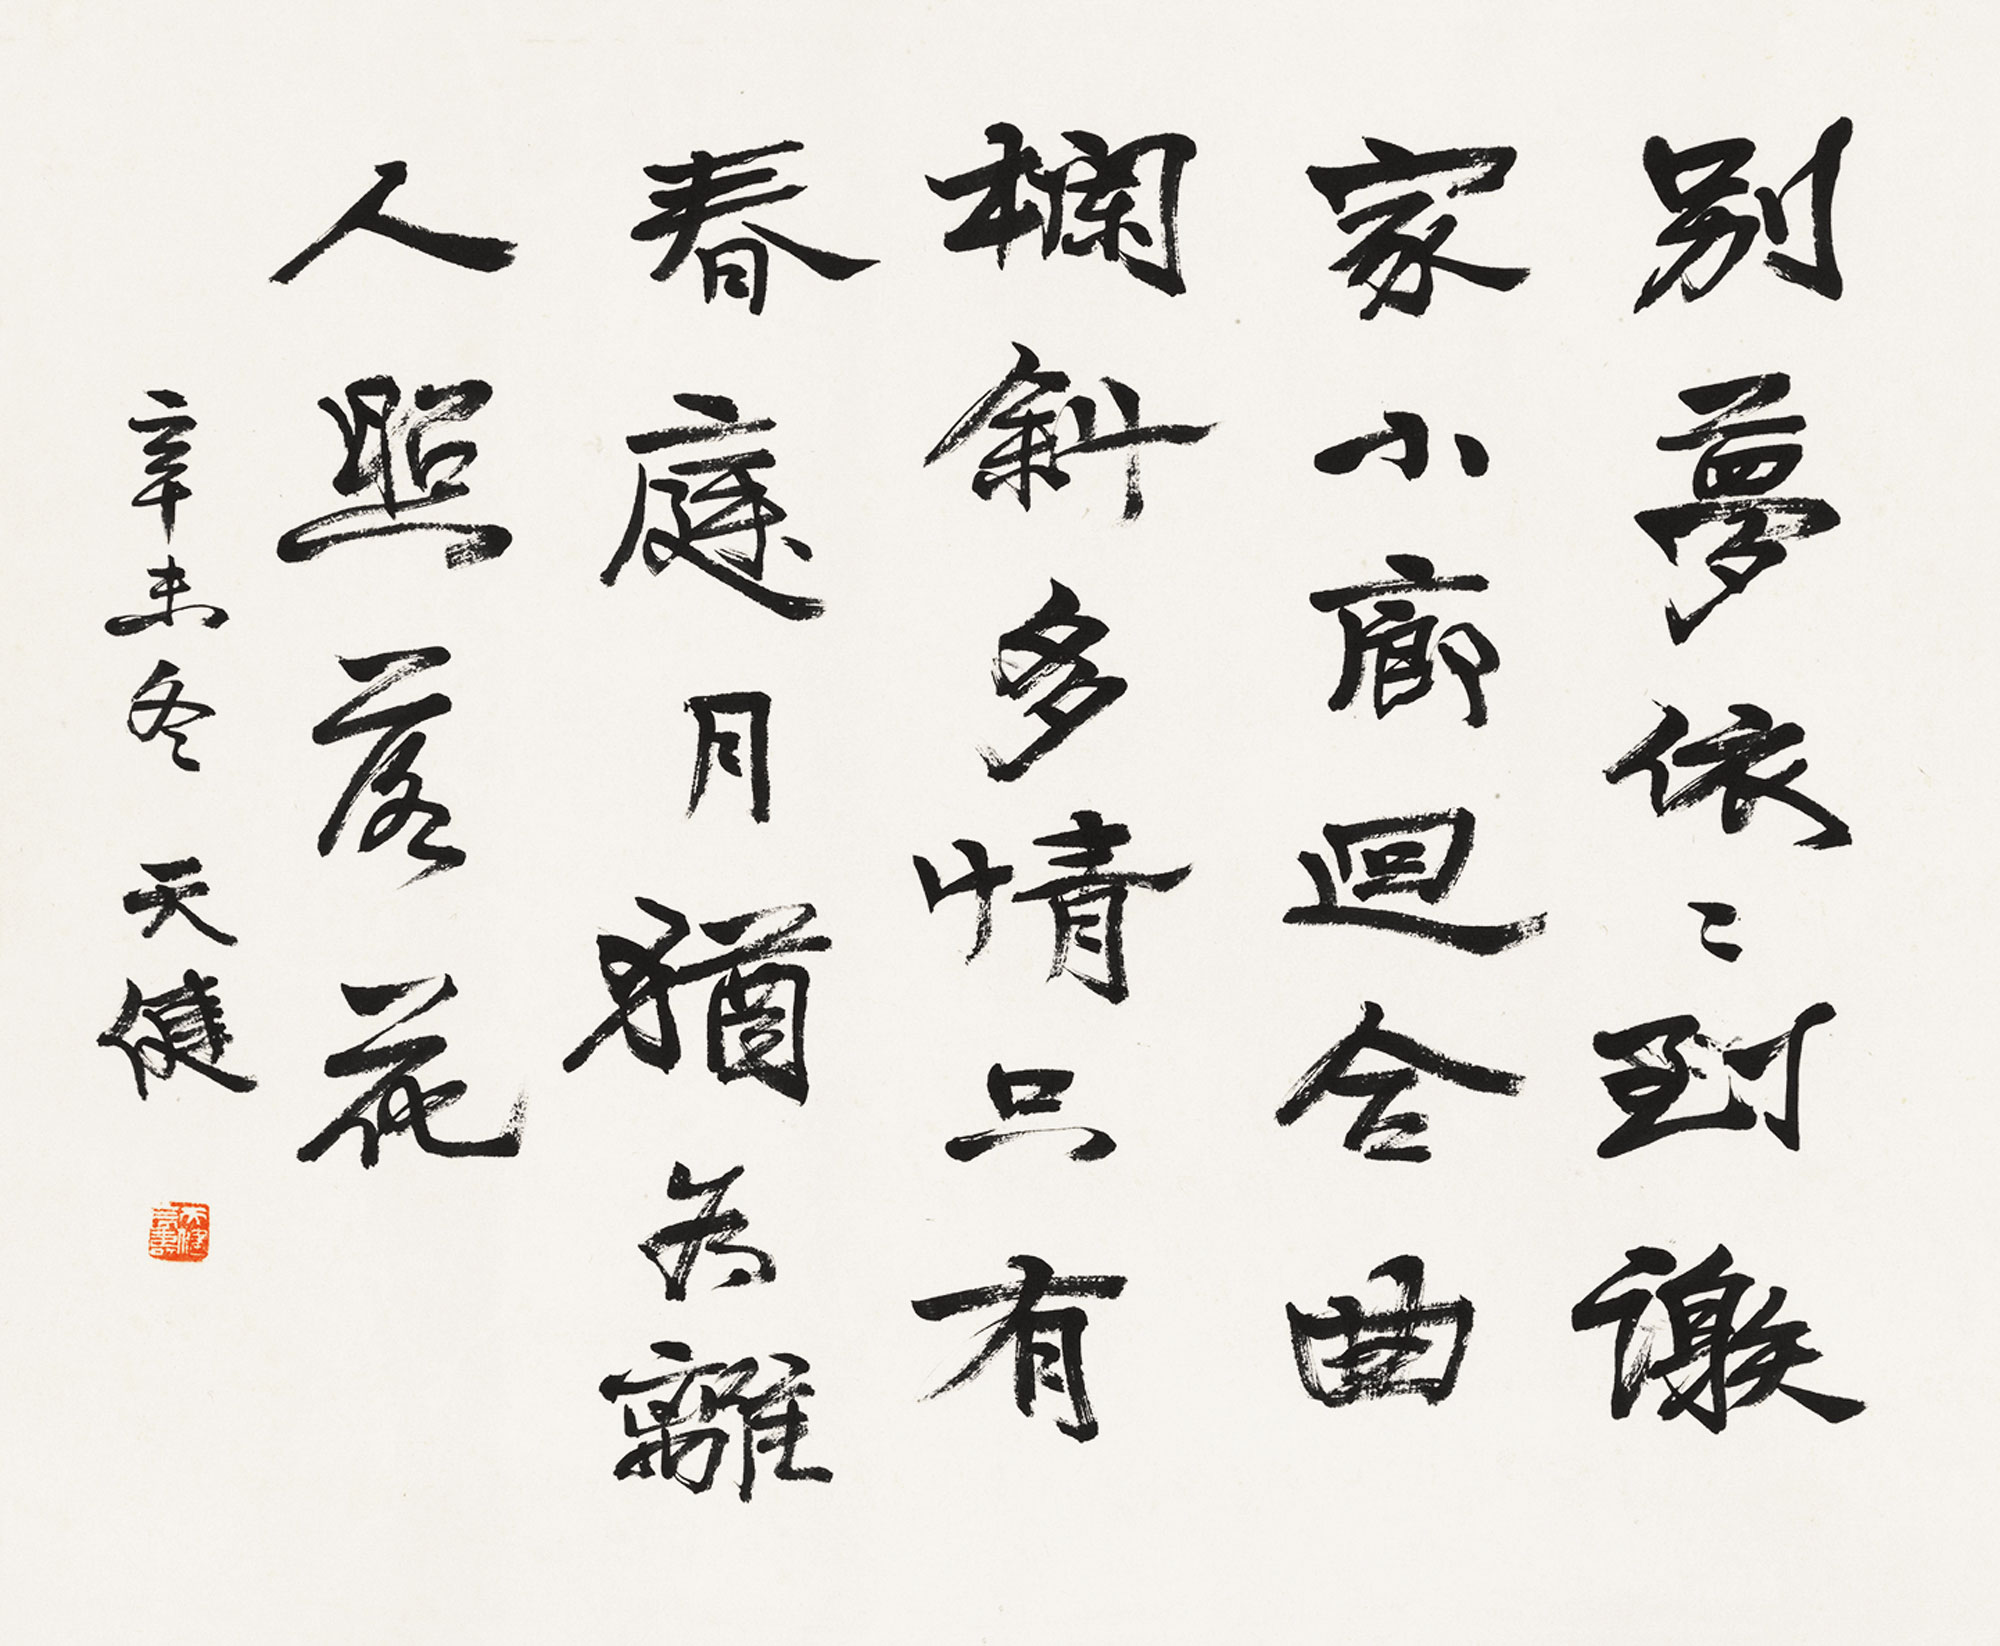 别夢依〻到謝
家小廊迴合曲
欄斜多情只有
春庭月猶為離
人照落花
辛未冬 天健